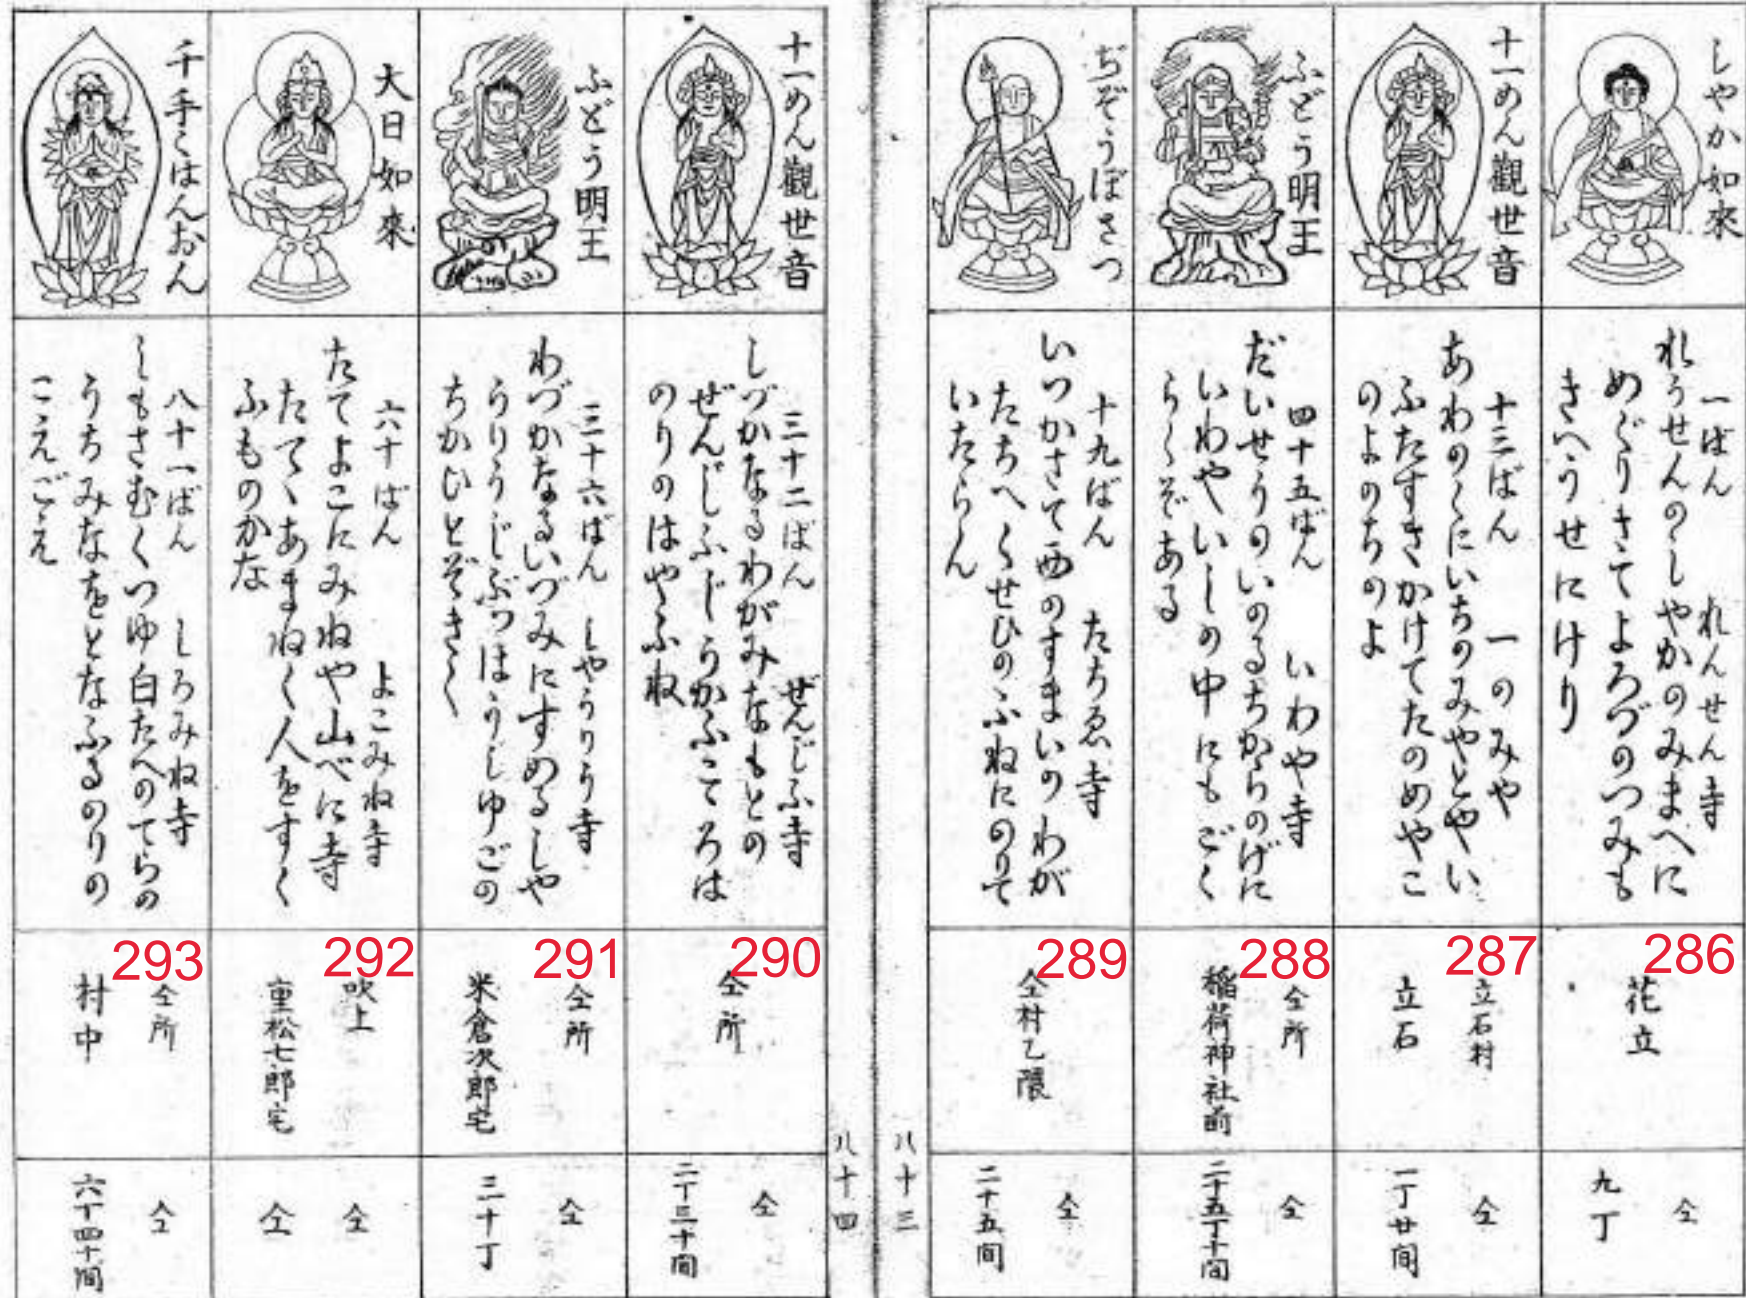 しやか如來
一ばん　れんせん寺
れうせんのしやかのみまへに
めぐりきてよろづのつみも
きへうせにけり
286
花立
仝
九丁
十一めん觀世音
十三ばん　一のみや
あわのくにいちのみやとやい
ふたすきかけてたのめやこ
のよのちのよ
287
立石村
立石
仝
一丁廿間
ふどう明王
四十五ばん　いわや寺
だいせうのいのるちからのげに
いわやいしの中にもごく
らくぞある
288
仝所
稲荷神社前
仝
二十五丁十間
ぢぞうぼさつ
十九ばん　たちゑ寺
いつかさて西のすまいのわが
たちへくせひのふねにのりて
いたらん
289
仝村乙隈
仝
二十五間
八十三
八十四
十一めん觀世音
三十二ばん　ぜんじふ寺
しづかなるわがみなもとの
ぜんじふじうかふこころは
のりのはやふね
290
仝所
仝
二丁三十間
ふどう明王
三十六ばん　しやうりう寺
わづかなるいづみにすめるしや
うりうじぶつほうしゆごの
ちかひとぞきく
291
仝所
米倉次郎宅
仝
三十丁
大日如來
六十ばん　よこみね寺
たてよこにみねや山べに寺
たてゝあまねく人をすく
ふものかな
292
吹上
重松七郎宅
仝
仝
千手くはんおん
八十一ばん　しろみね寺
しもさむくつゆ白たへのてらの
うちみなをとなふるのりの
こえごえ
293
仝所
村中
仝
六丁四十間